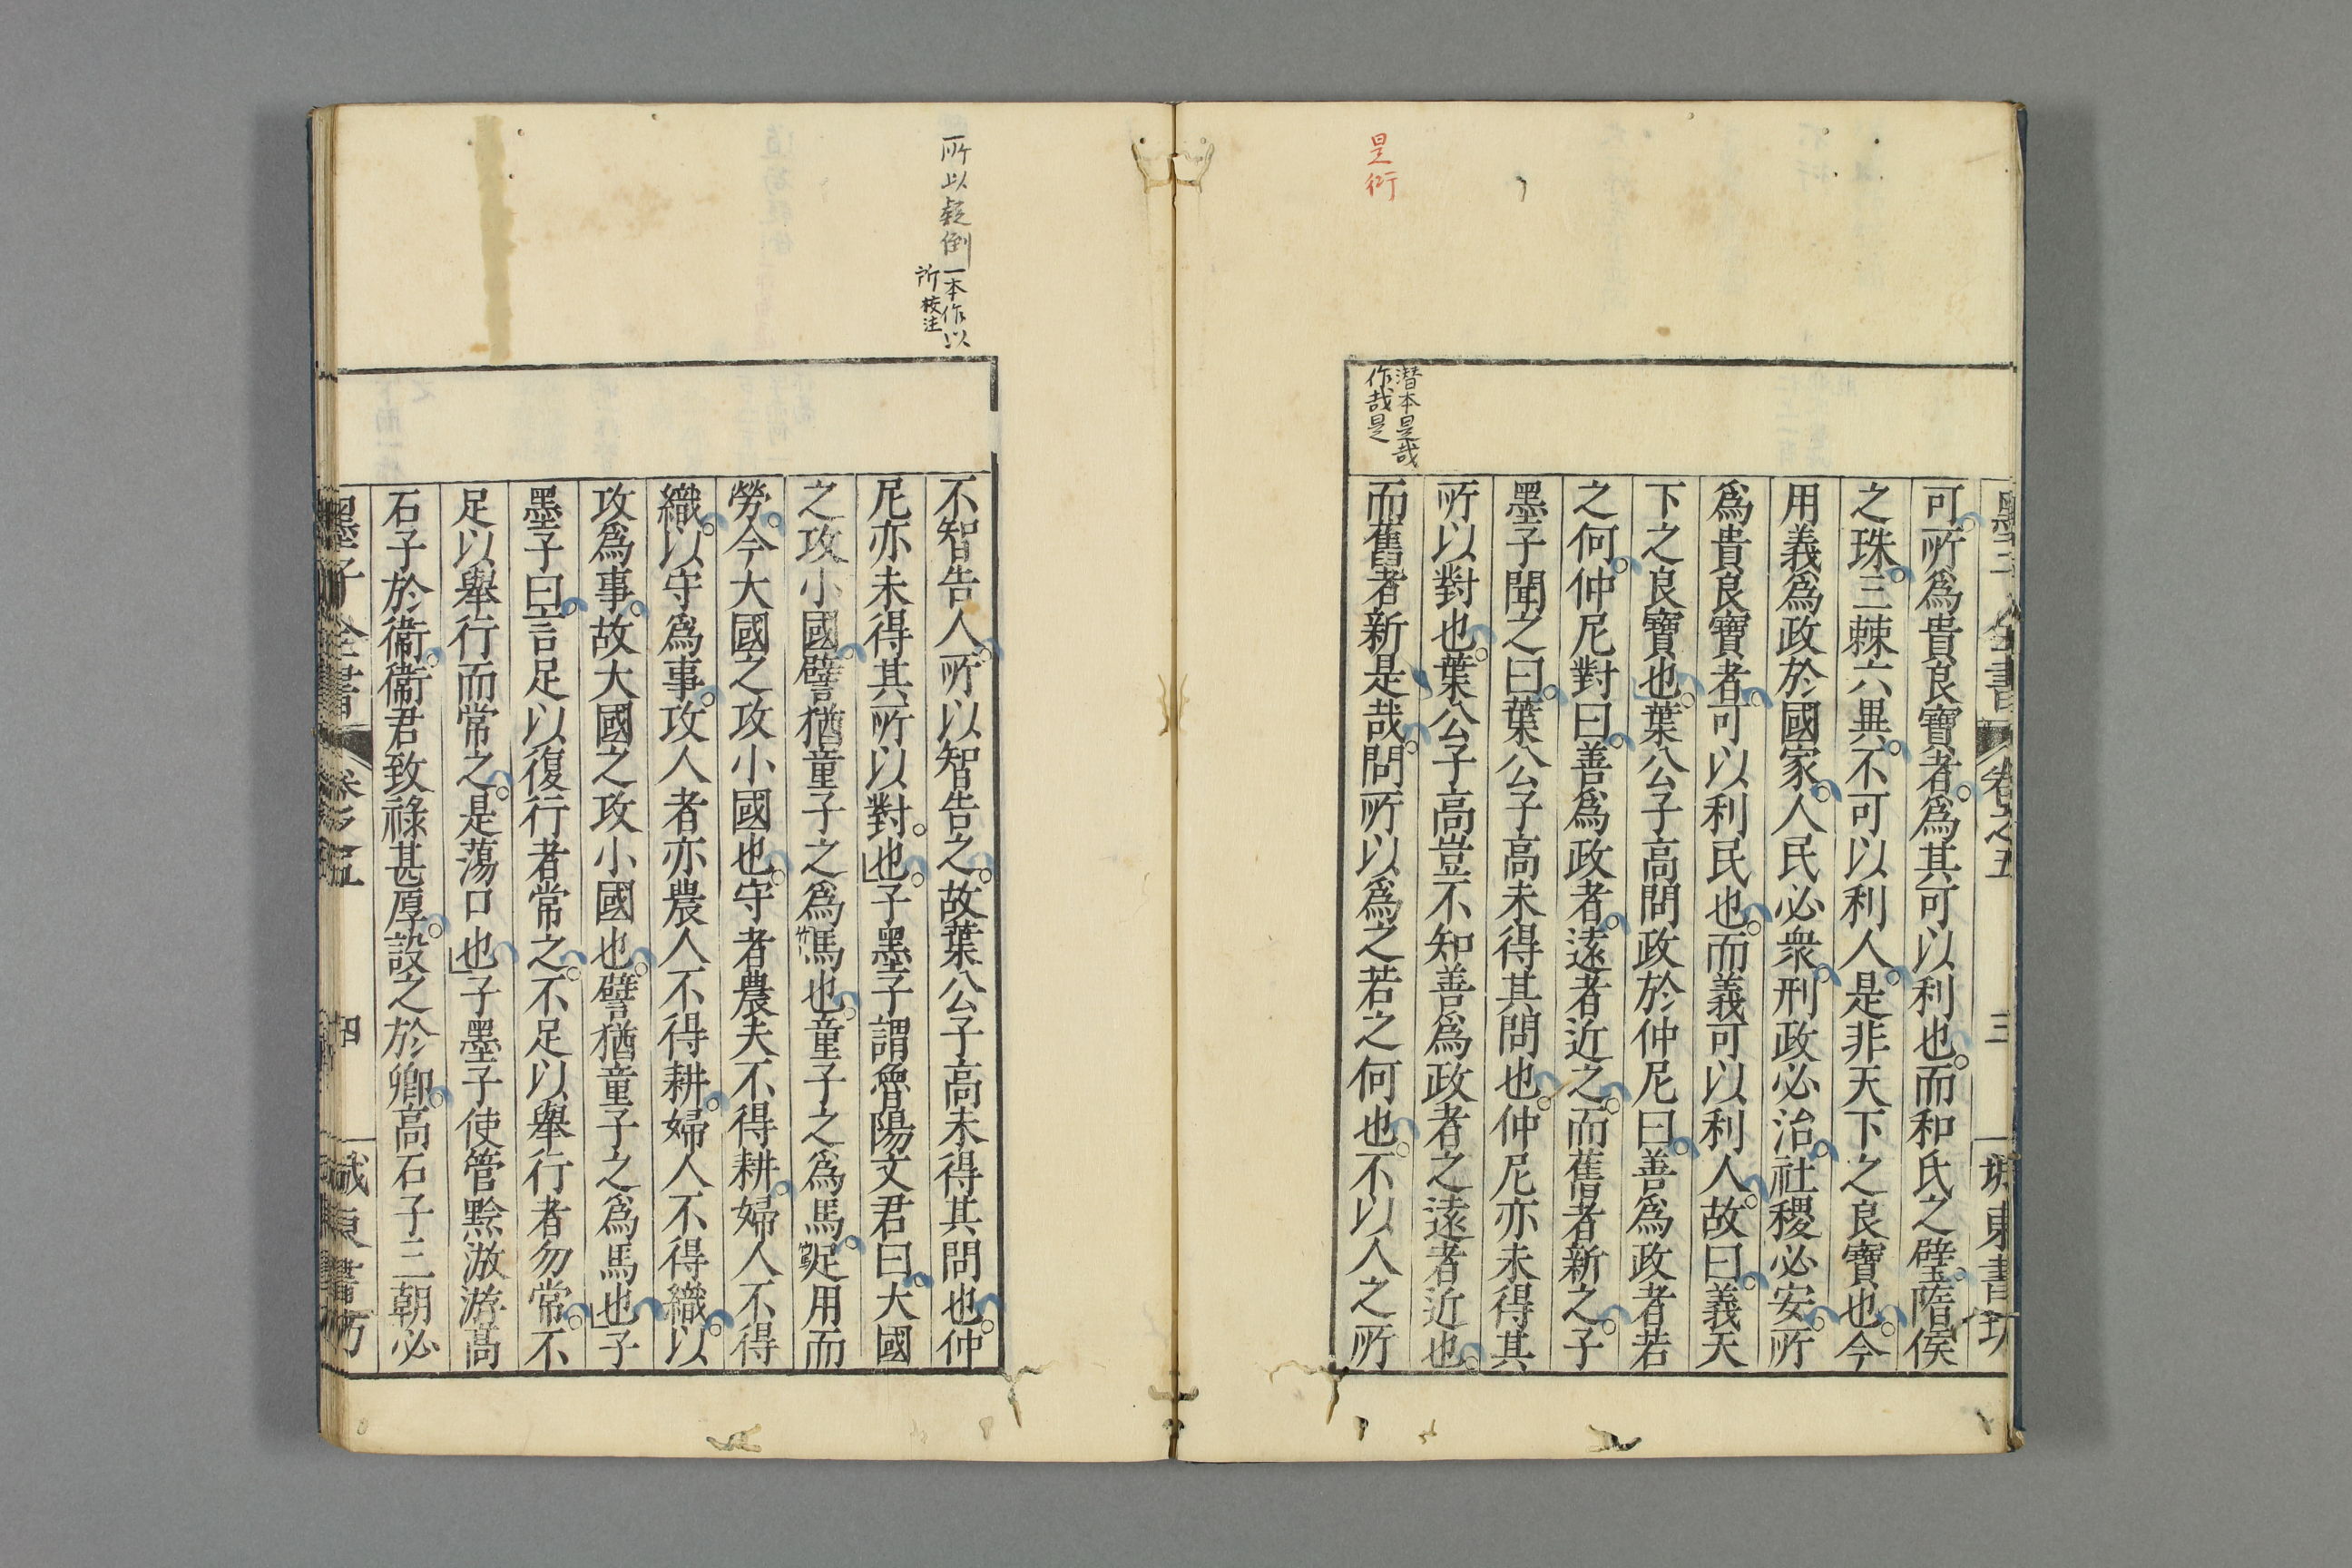 是衍
潛本是哉
作哉是
墨子全書
卷之五
三
城東書坊
可所爲貴良寶者爲其可以利也而和氏之璧隋侯
之珠三棘六異不可以利人是非天下之良寶也今
用義爲政於國家人民必衆刑政必治社稷必安所
爲貴良寶者可以利民也而義可以利人故曰義天
下之良寶也葉公子高問政於仲尼曰善爲政者若
之何仲尼對曰善爲政者遠者近之而舊者新之子
墨子聞之曰葉公子高未得其問也仲尼亦未得其
所以對也葉公子高豈不知善爲政者之遠者近也
而舊者新是哉問所以爲之若之何也不以人之所
所以疑倒
一本作以
所校注
不智告人所以智告之故葉公子高未得其問也仲
尼亦未得其所以對也子墨子謂魯陽文君曰大國
之攻小國譬猶童子之爲馬也童子之爲馬足用而
勞今大國之攻小國也守者農夫不得耕婦人不得
織以守爲事攻人者亦農人不得耕婦人不得織以
攻爲事故大國之攻小國也譬猶童子之爲馬也子
墨子曰言足以復行者常之不足以舉行者勿常不
足以舉行而常之是蕩口也子墨子使管黔滶游高
石子於衞衞君致祿甚厚設之於卿高石子三朝必
墨子全書
卷之五
四
城東書坊